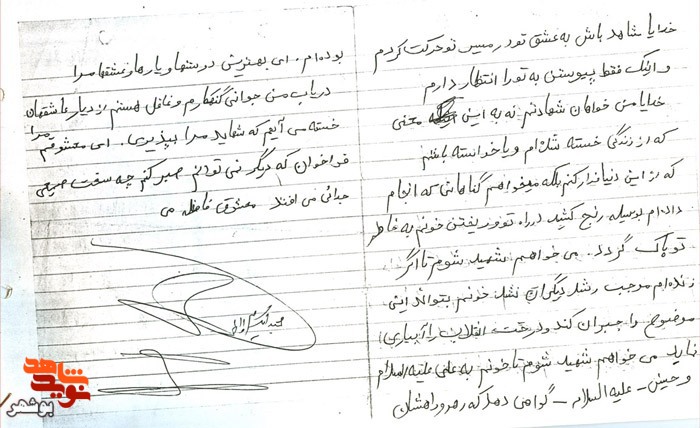 خدایا شاهد باش به عشق تو در مسیر تو حرکت کردم
و اینک فقط پیوستن به تو را انتظار دارم
خدایا من خواهان شهادتم نه به این معنی
که از زندگی خسته شده‌ام و یا خواسته باشم
که از این دنیا فرار کنم بلکه میخواهم گناهانی که انجام
داده‌ام بوسیله رنج کشید در راه تو و ریختن خونم به خاطر
تو پاک گردد. می خواهم شهید شوم تا اگر
زنده‌ام موجب رشد دیگران نشد خونم بتواند این
موضوع را جبران کند و درخت انقلاب را آبیاری
نماید می خواهم شهید شوم تا خونم به علی علیه السلام
و حسین - علیه السلام - گواهی دهد که رهرو راهشان
بوده‌ام. ای بهترین دوستها و یارها و عشقها مرا
دریاب من جوانی گنهکارم و غافل هستم از دیار عاشقان
خسته می آیم که شاید مرا بپذیری. ای معشوقم مرا
فراخوان که دیگر نمی توانم صبر کنم چه سخت
جدائی می افتد معشوق
شاهد
نوید
بوشهر